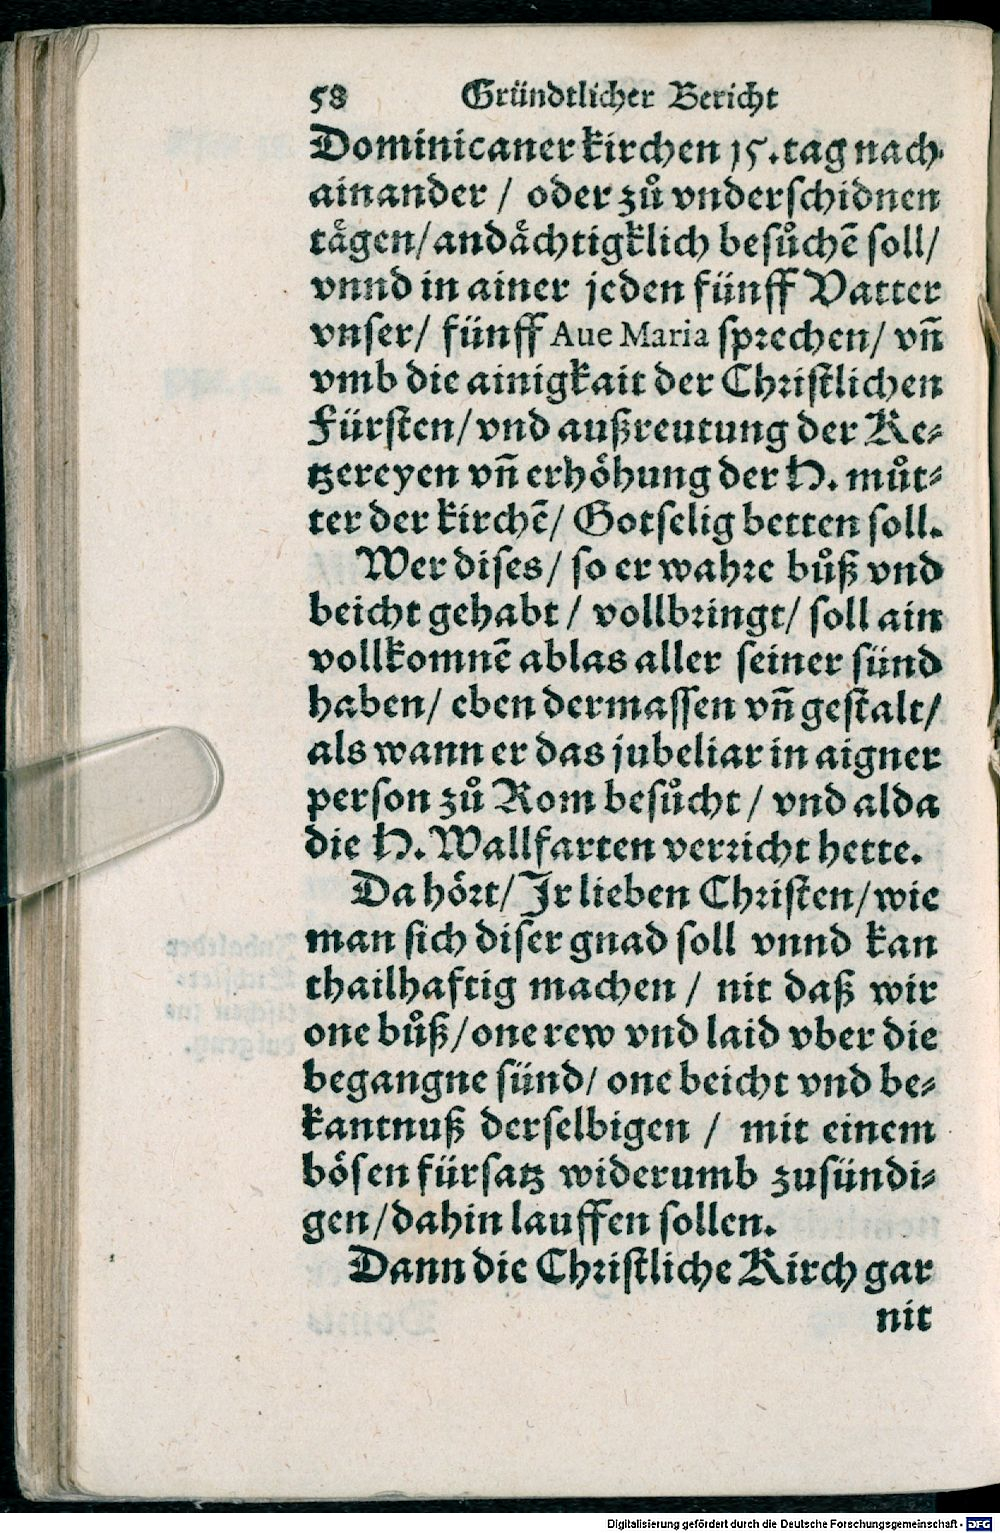 58 Gründtlicher Bericht
Dominicaner kirchen 15. tag nach
ainander / oder zuͦ vnderſchidnen
taͤgen/ andaͤchtigklich beſuͦchẽ ſoll/
vnnd in ainer jeden fünff Vatter
vnſer/ fünff Aue Maria ſprechen/ vñ
vmb die ainigkait der Chriſtlichen
Fürſten/ vnd außreutung der Ke⸗
tzereyen vñ erhoͤhung der H. muͦt⸗
ter der kirchẽ/ Gotſelig betten ſoll.
Wer diſes/ ſo er wahre buͦß vnd
beicht gehabt / vollbringt/ ſoll ain
vollkomnẽ ablas aller ſeiner ſünd
haben/ eben dermaſſen vñ geſtalt/
als wann er das jubeliar in aigner
perſon zuͦ Rom beſuͦcht / vnd alda
die H. Wallfarten verricht hette.
Da hoͤrt/ Jr lieben Chriſten/ wie
man ſich diſer gnad ſoll vnnd kan
thailhaftig machen / nit daß wir
one buͦß/ one rew vnd laid vber die
begangne ſünd/ one beicht vnd be⸗
kantnuß derſelbigen / mit einem
boͤſen fürſatz widerumb zuſündi⸗
gen/ dahin lauffen ſollen.
Dann die Chriſtliche Kirch gar
nit
Digitalisierung gefördert durch die Deutsche Forschungsgemeinschaft - DFG